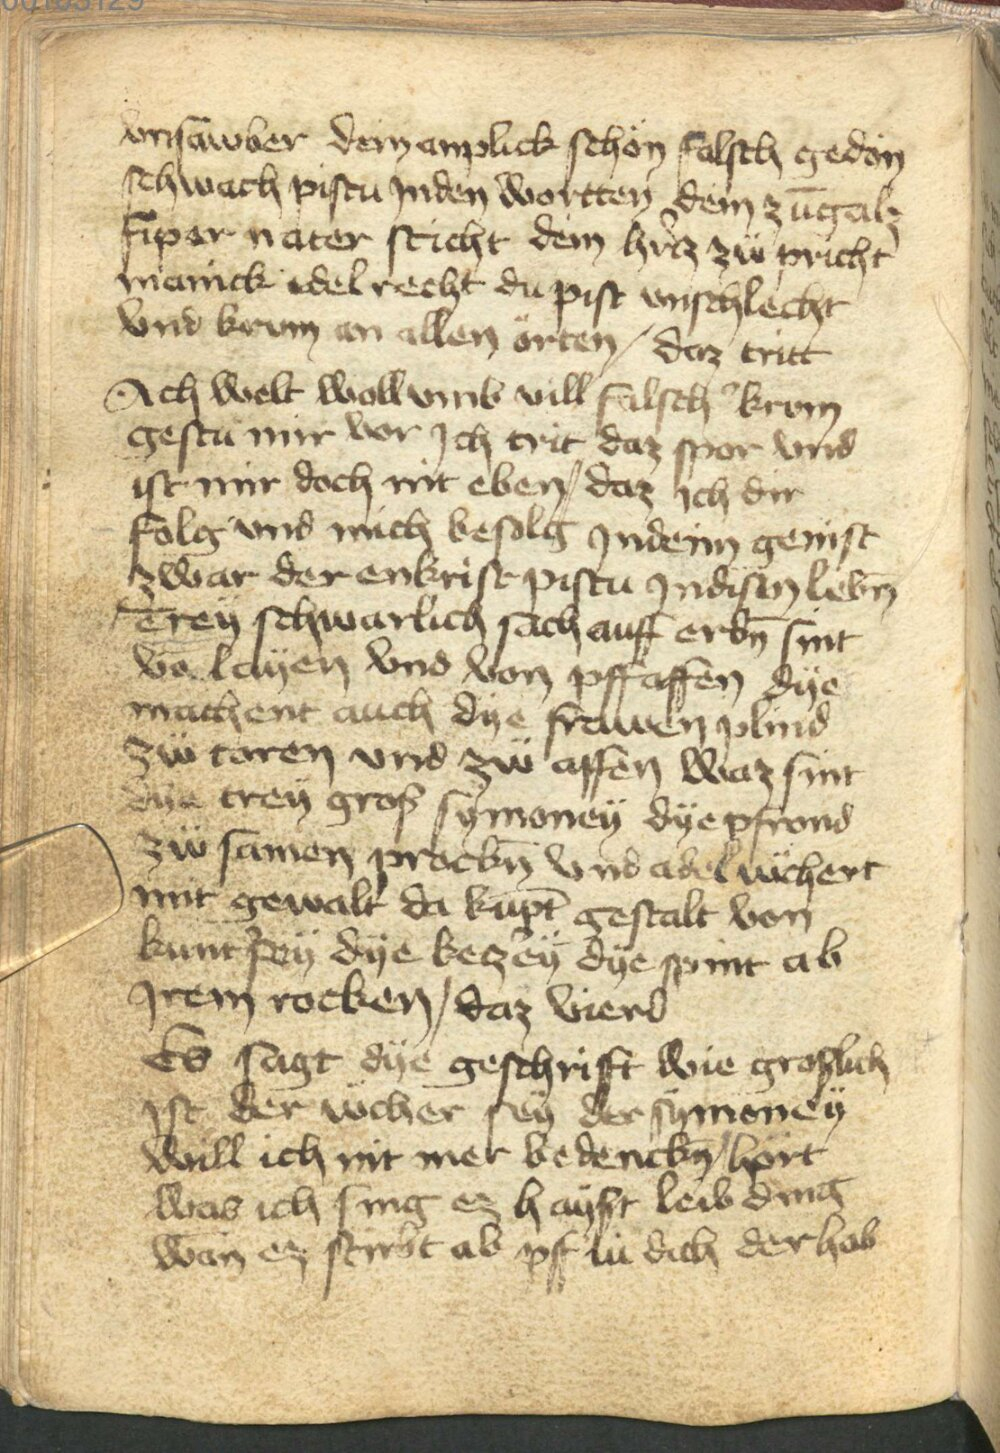 00103129
vnsawber dein anplick schön falsch gedön
schwach pistu Jnden wortten dein zūgalz
fiper nater sticht dein hrͤz zü pricht
manick edel recht du pist vnschlecht
vnd krum an allen örten / daz tritt
Ach welt woll vmb vill falsch krom
gestu mir vor Jch trit daz spor vnd
ist mir doch nit eben / daz ich dir
folg vnd mich besolg Jndeim genist
zwar der enkrist pistu Jndisen lebn̄
Trey schwarlich sach auff erdn̄ sint
vō layen vnd von pffaffen dÿe
machent auch dÿe frawen plind
zü toren vnd zü affen waz sint
dÿe trey groß symoneÿ dÿe pfrond
zü samen prockn̄ vnd adel wchert
mit gewalt da kūpt gestalt von
dÿe keczeÿ dÿe spint ab
Jrem rocken / daz vierd
Es sagt dÿe geschrift wie groslich
ist der wcher seÿ der sÿmoneÿ
will ich nit mer bedenckn̄ / hört
was ich sing ez haÿst leib ding
wan ez stirbt ab pf lu dich der hab